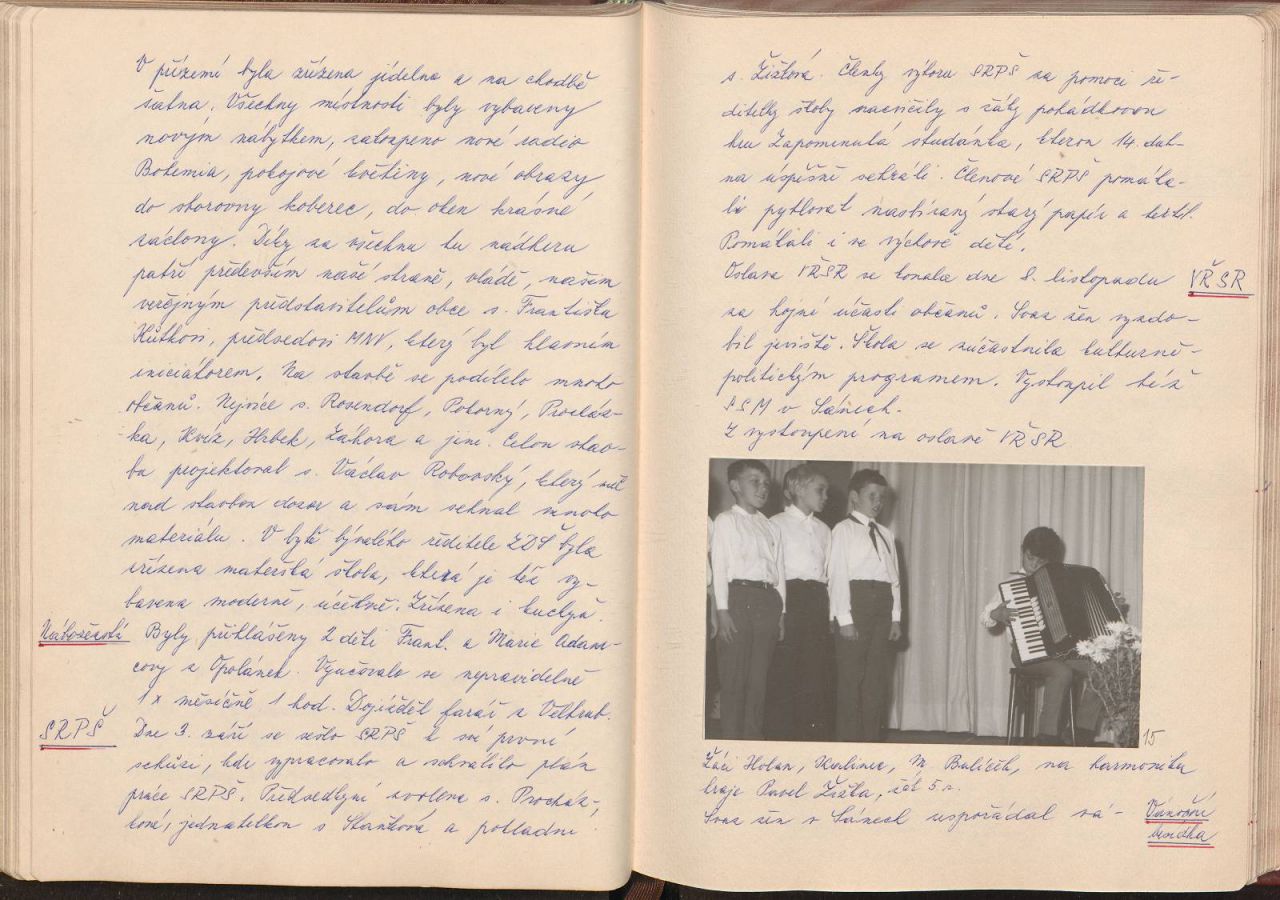 V přízemí byla zřízena jídelna a na chodbě
šatna. Všechny místnosti byly vybaveny
novým nábytkem, zakoupeno nové radio
Bohemia, pokojové květiny, nové obrazy
do sborovny koberec, do oken krásné
záclony. Díky za všechnu tu nádheru
patří především naší straně, vládě, našim
veřejným představitelům obce s. Františku
Kutkovi, předsedovi MNV, který byl hlavním
iniciátorem. Na stavbě se podílelo mnoho
občanů. Nejvíce s. Rosendorf, Pokorný, Procház-
ka, Kvíz, Hrbek, Záhora a jiní. Celou stav-
bu projektoval s. Václav Robovský, který měl
nad stavbou dozor a sám sehnal mnoho
materiálu. V bytě bývalého ředitele ZDŠ byla
zřízena mateřská škola, která je též vy-
bavena moderně, účelně. Zřízena i kuchyň.
Náboženství Byly přihlášeny 2 děti Frant. a Marie Adam-
covy z Opolánek. Vyučovalo se nepravidelně
1x měsíčně 1 hod. Dojížděl farář z Veltrub.
SRPŠ Dne 3. září se sešlo SRPŠ k své první
schůzi, kde vypracovalo a schválilo plán
práce SRPŠ. Předsedkyní zvolena s. Procház-
ková, jednatelkou s Staňková a pokladní
s. Žižková. Členky výboru SRPŠ za pomoci ře-
ditelky školy nacvičily s žáky pohádkovou
hru Zapomenutá studánka, kterou 14. dub-
na úspěšně sehráli. Členové SRPŠ pomáha-
li pytlovat nasbíraný starý papír a textil.
Pomáhali i ve výchově dětí.
Oslava VŘSR se konala dne 8. listopadu VŘSR
za hojné účasti občanů. Svaz žen vyzdo-
bil jeviště. Škola se zúčastnila kulturně-
politickým programem. Vystoupil též
SSM v Sánech.
Z vystoupení na oslavě VŘSR
15
Žáci Holan, Kalinec, M. Balíček, na harmoniku
hraje Pavel Žižka, žák 5 r.
Svaz žen v Sánech uspořádal vá- Vánoční
besídka